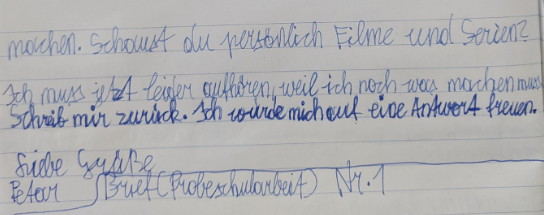 machen. Schaust du persönlich Filme und Serien?
Ich muss jetzt leider aufhören, weil ich noch was machen muss.
Schreib mir zurück. Ich würde mich auf eine Antwort freuen.
Liebe Grüße
Petar Brief (Probeschularbeit) Nr. 1